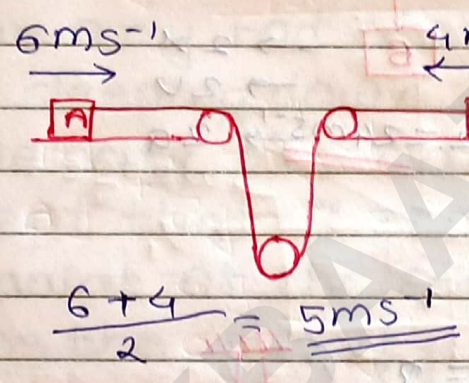 6ms⁻¹
4
A
6 + 4 / 2 = 5ms⁻¹